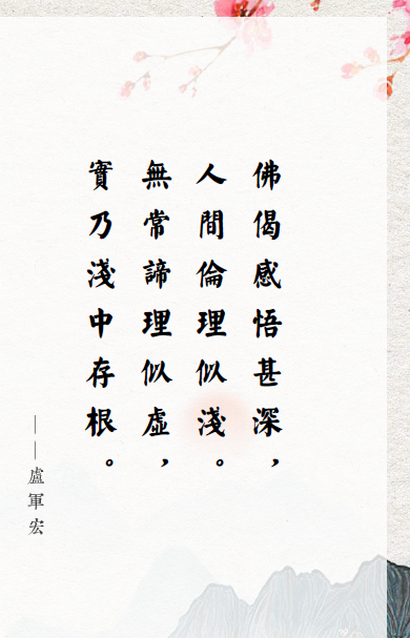 佛偈感悟甚深，
人間倫理似淺。
無常諦理似虛，
實乃淺中存根。
——盧軍宏